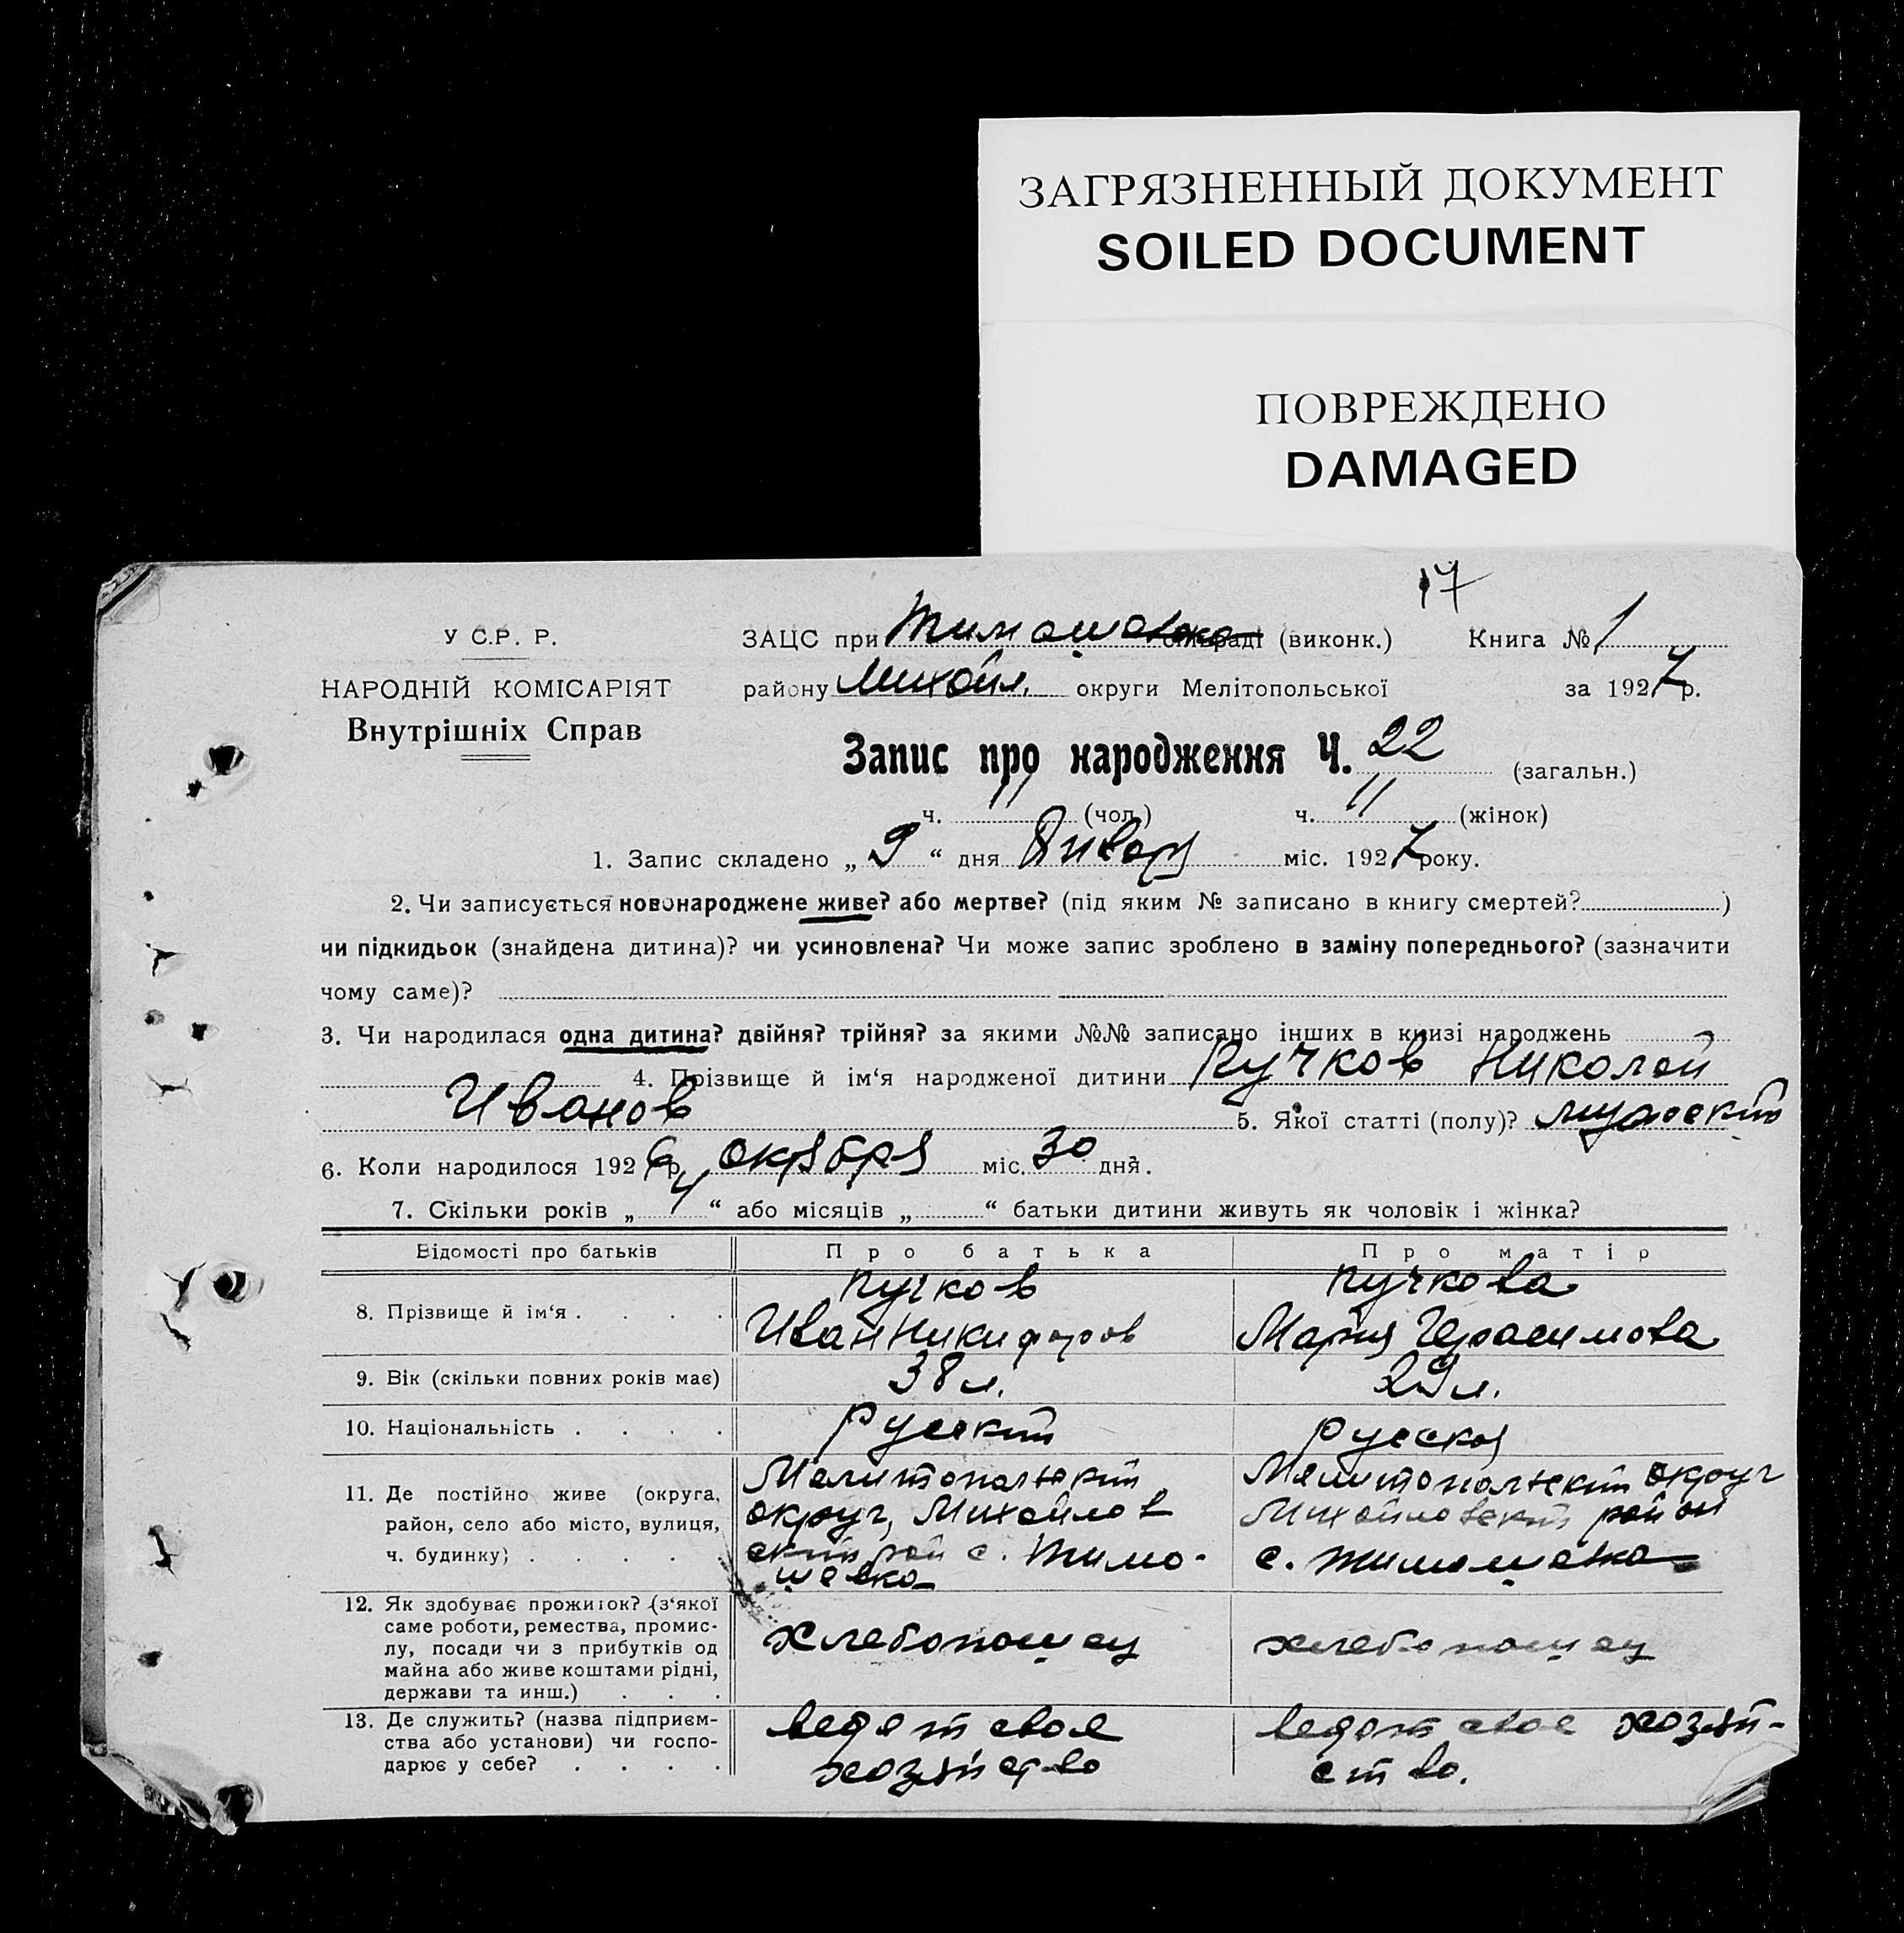 ЗАГРЯЗНЕННЫЙ ДОКУМЕНТ
SOILED DOCUMENT
ПОВРЕЖДЕНО
DAMAGED
17
У С.Р. Р.
НАРОДНІЙ КОМІСАРІЯТ
Внутрішніх Справ
ЗАЦС при Тимошовка (виконк.) Книга № 1
району Михайл. округи Мелітопольської за 1927 р.
Запис про народження Ч. 22 (загальн.)
ч. 11 (чол.) ч. 11 (жінок)
1. Запис складено „ 9 “ дня Январ міс. 1927 року.
2. Чи записується новонароджене живе? або мертве? (під яким № записано в книгу смертей? )
чи підкидьок (знайдена дитина)? чи усиновлена? Чи може запис зроблено в заміну попереднього? (зазначити
чому саме)?
3. Чи народилася одна дитина? двійня? трійня? за якими №№ записано інших в книзі народжень
4. Прізвище й ім‘я народженої дитини Пучков Николай
Иванов 5. Якої статті (полу)? мужский
6. Коли народилося 1926 р. октября міс. 30 дня.
7. Скільки років „ 4 “ або місяців „ “ батьки дитини живуть як чоловік і жінка?
Відомості про батьків Про батька Про матір
8. Прізвище й ім‘я . . . . Пучков Иван Никифоров Пучкова Мария Герасимова
9. Вік (скільки повних років має) 38 л. 29 л.
10. Національність . . . . Русский Русская
11. Де постійно живе (округа, Мелитопольский Мелитопольский округ
район, село або місто, вулиця, округ, Михайлов Михайловский район
ч. будинку) . . . . ский рай с. Тимо- с. Тимошовка
шовка
12. Як здобуває прожиток? (з‘якої
саме роботи, ремества, промис-
лу, посади чи з прибутків од хлебопашец хлебопашец
майна або живе коштами рідні,
держави та инш.) . . .
13. Де служить? (назва підприєм- ведет свое ведет свое хозяй-
ства або установи) чи госпо- хозяйство ство.
дарює у себе? . . . .